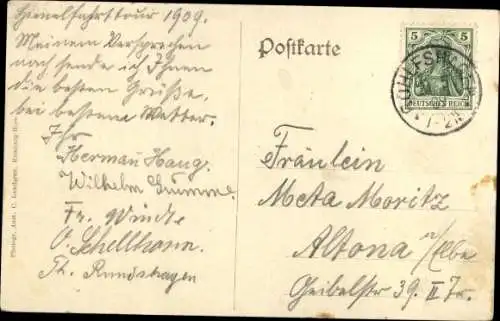 Himmelfahrttour 1909.
Meinem Versprechen
nach sende ich Ihnen
die besten Grüße,
bei bestem Wetter.
Ihr
Herman Haug.
Wilhelm
Fr. Winde
O. Schellhorn.
Th. Rundshagen
Postkarte
5 5
DEUTSCHES REICH
Fräulein
Meta Moritz
Altona a/Elbe
Geibelstr 39. II Fr.